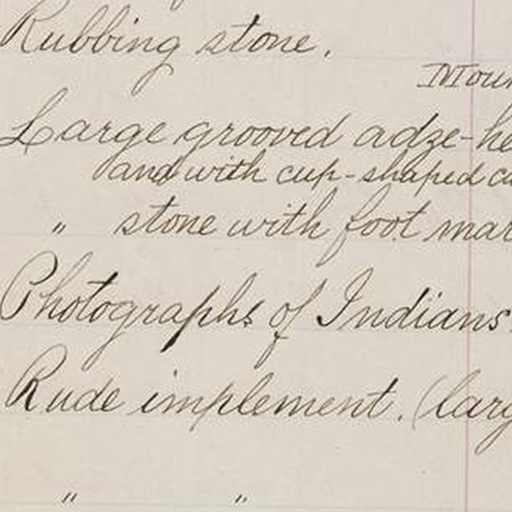 Rubbing stone.
Large grooved adze-
and with cup-shaped
" stone with foot
Photographs of Indians.
Rude implement.
" "